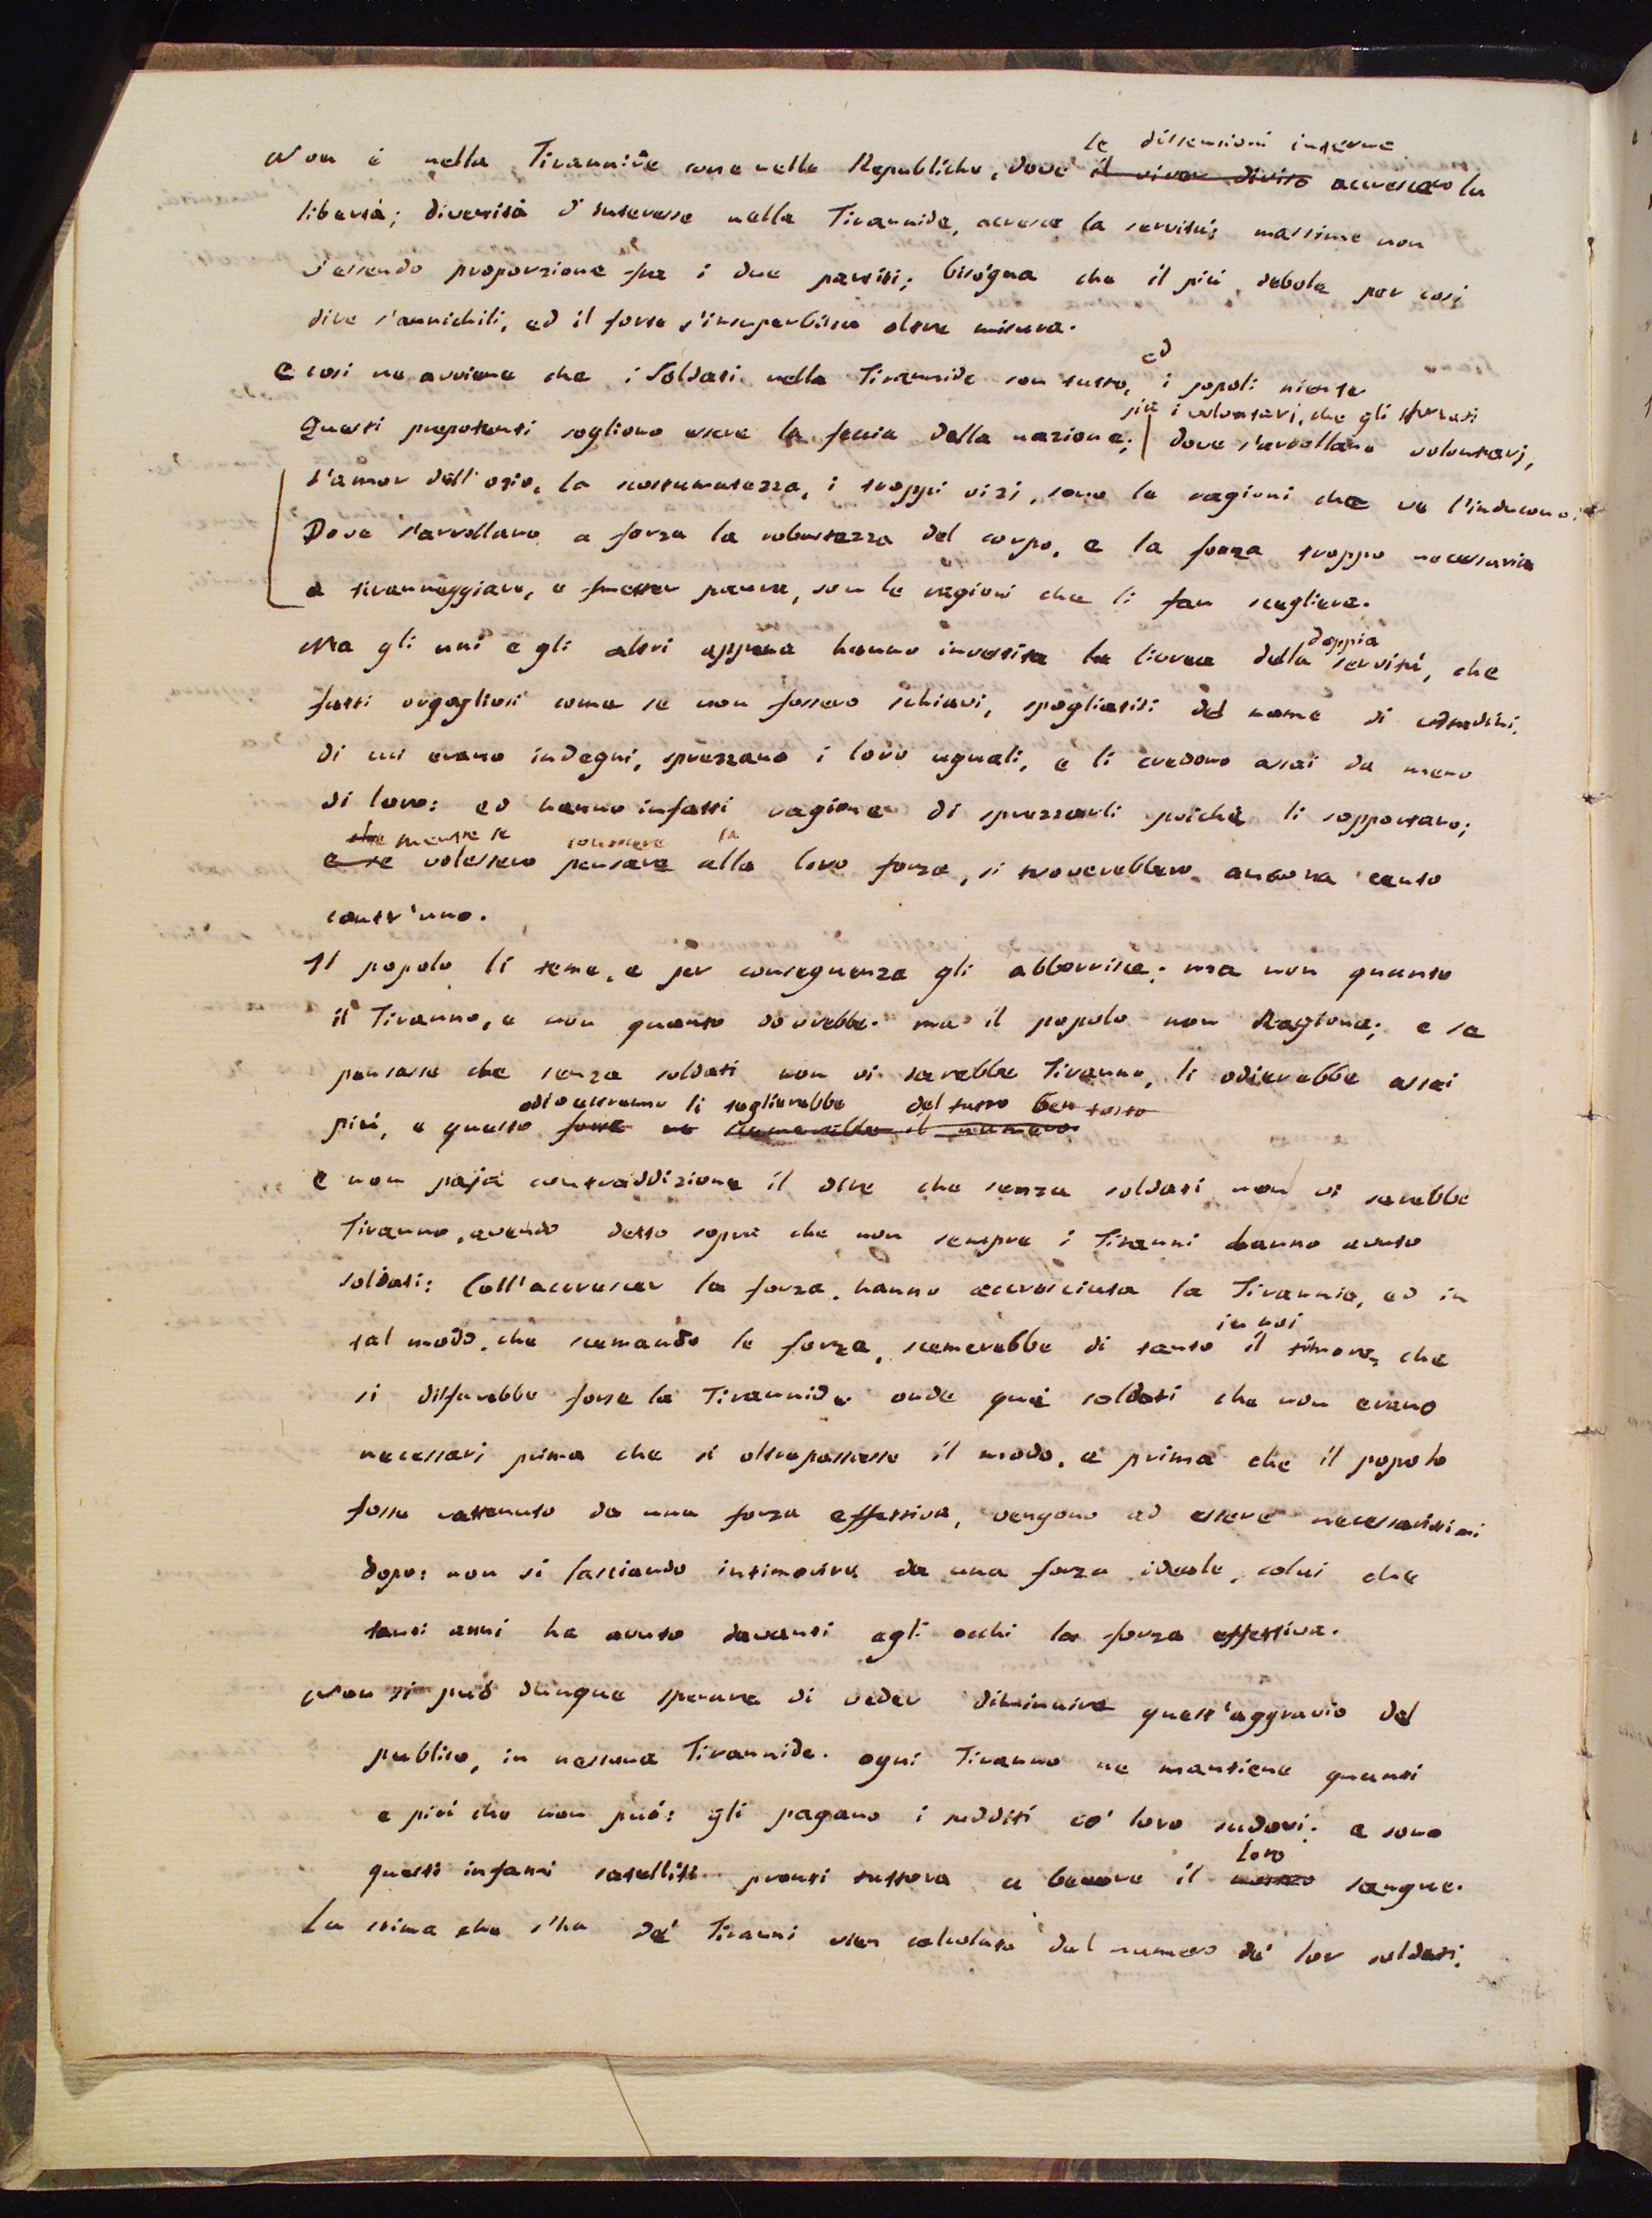 le dissensioni interne
Non è nella Tirannide come nelle Republiche, dove il viver diviso accrescano la
libertà; diversità d'interesse nella Tirannide, accresce la servitù; massime non
v'essendo proporzione fra i due partiti; bisogna che il più debole per così
dire s'annichili, ed il forte s'insuperbisca oltre misura.
ed
E così ne avviene che i Soldati nella Tirannide son tutto, i popoli niente
più i volontarj, che gli sforzati
Questi prepotenti sogliono essere la feccia della nazione; dove s'arrollano volontarj,
l'amor dell'ozio, la scostumatezza, i troppi vizj, sono le ragioni che ve l'inducono.
Dove s'arrollano a forza la robustezza del corpo, e la forza troppo necessaria
a tiranneggiare, e metter paura, son le ragioni che li fan scegliere.
doppia
Ma gli uni e gli altri appena hanno investita la livrea della servitù, che
fatti orgogliosi come se non fossero schiavi, spogliatisi del nome di cittadini,
di cui erano indegni, sprezzano i loro uguali, e li credono assai da meno
di loro: ed hanno infatti ragione di sprezzarli poichè li sopportano;
che mentre se conoscere la
e se volessero pensare alla loro forza, si troverebbero ancora cento
contr'uno.
Il popolo li teme, e per conseguenza gli abborrisce; ma non quanto
il Tiranno, e non quanto dovrebbe. ma il popolo non Ragiona; e se
pensasse che senza soldati non vi sarebbe Tiranno, li odierebbe assai
odio estremo li toglierebbe del tutto ben tosto
più, e questo forse ne scemerebbe il numero.
E non paja contraddizione il dire che senza soldati non vi sarebbe
Tiranno, avendo detto sopra che non sempre i Tiranni hanno avuto
soldati: Coll'accrescer la forza, hanno accresciuta la Tirannia, ed in
in noi
tal modo, che scemando la forza, scemerebbe di tanto il timore, che
si disfarebbe forse la Tirannide. onde que' soldati che non erano
necessarj prima che si oltrepassasse il modo, e prima che il popolo
fosse rattenuto da una forza effettiva, vengono ad essere necessarissimi
dopo: non si lasciando intimorire da una forza ideale, colui che
tanti anni ha avuto davanti agli occhi la forza effettiva.
Non si può dunque sperare di veder diminuire quest'aggravio del
publico, in nessuna Tirannide. ogni Tiranno ne mantiene quanti
e più che non può: gli pagano i sudditi co' loro sudori; e sono
loro
questi infami satelliti pronti tuttora a bevere il nostro sangue.
La stima che s'ha de' Tiranni vien calcolata dal numero de' lor soldati.